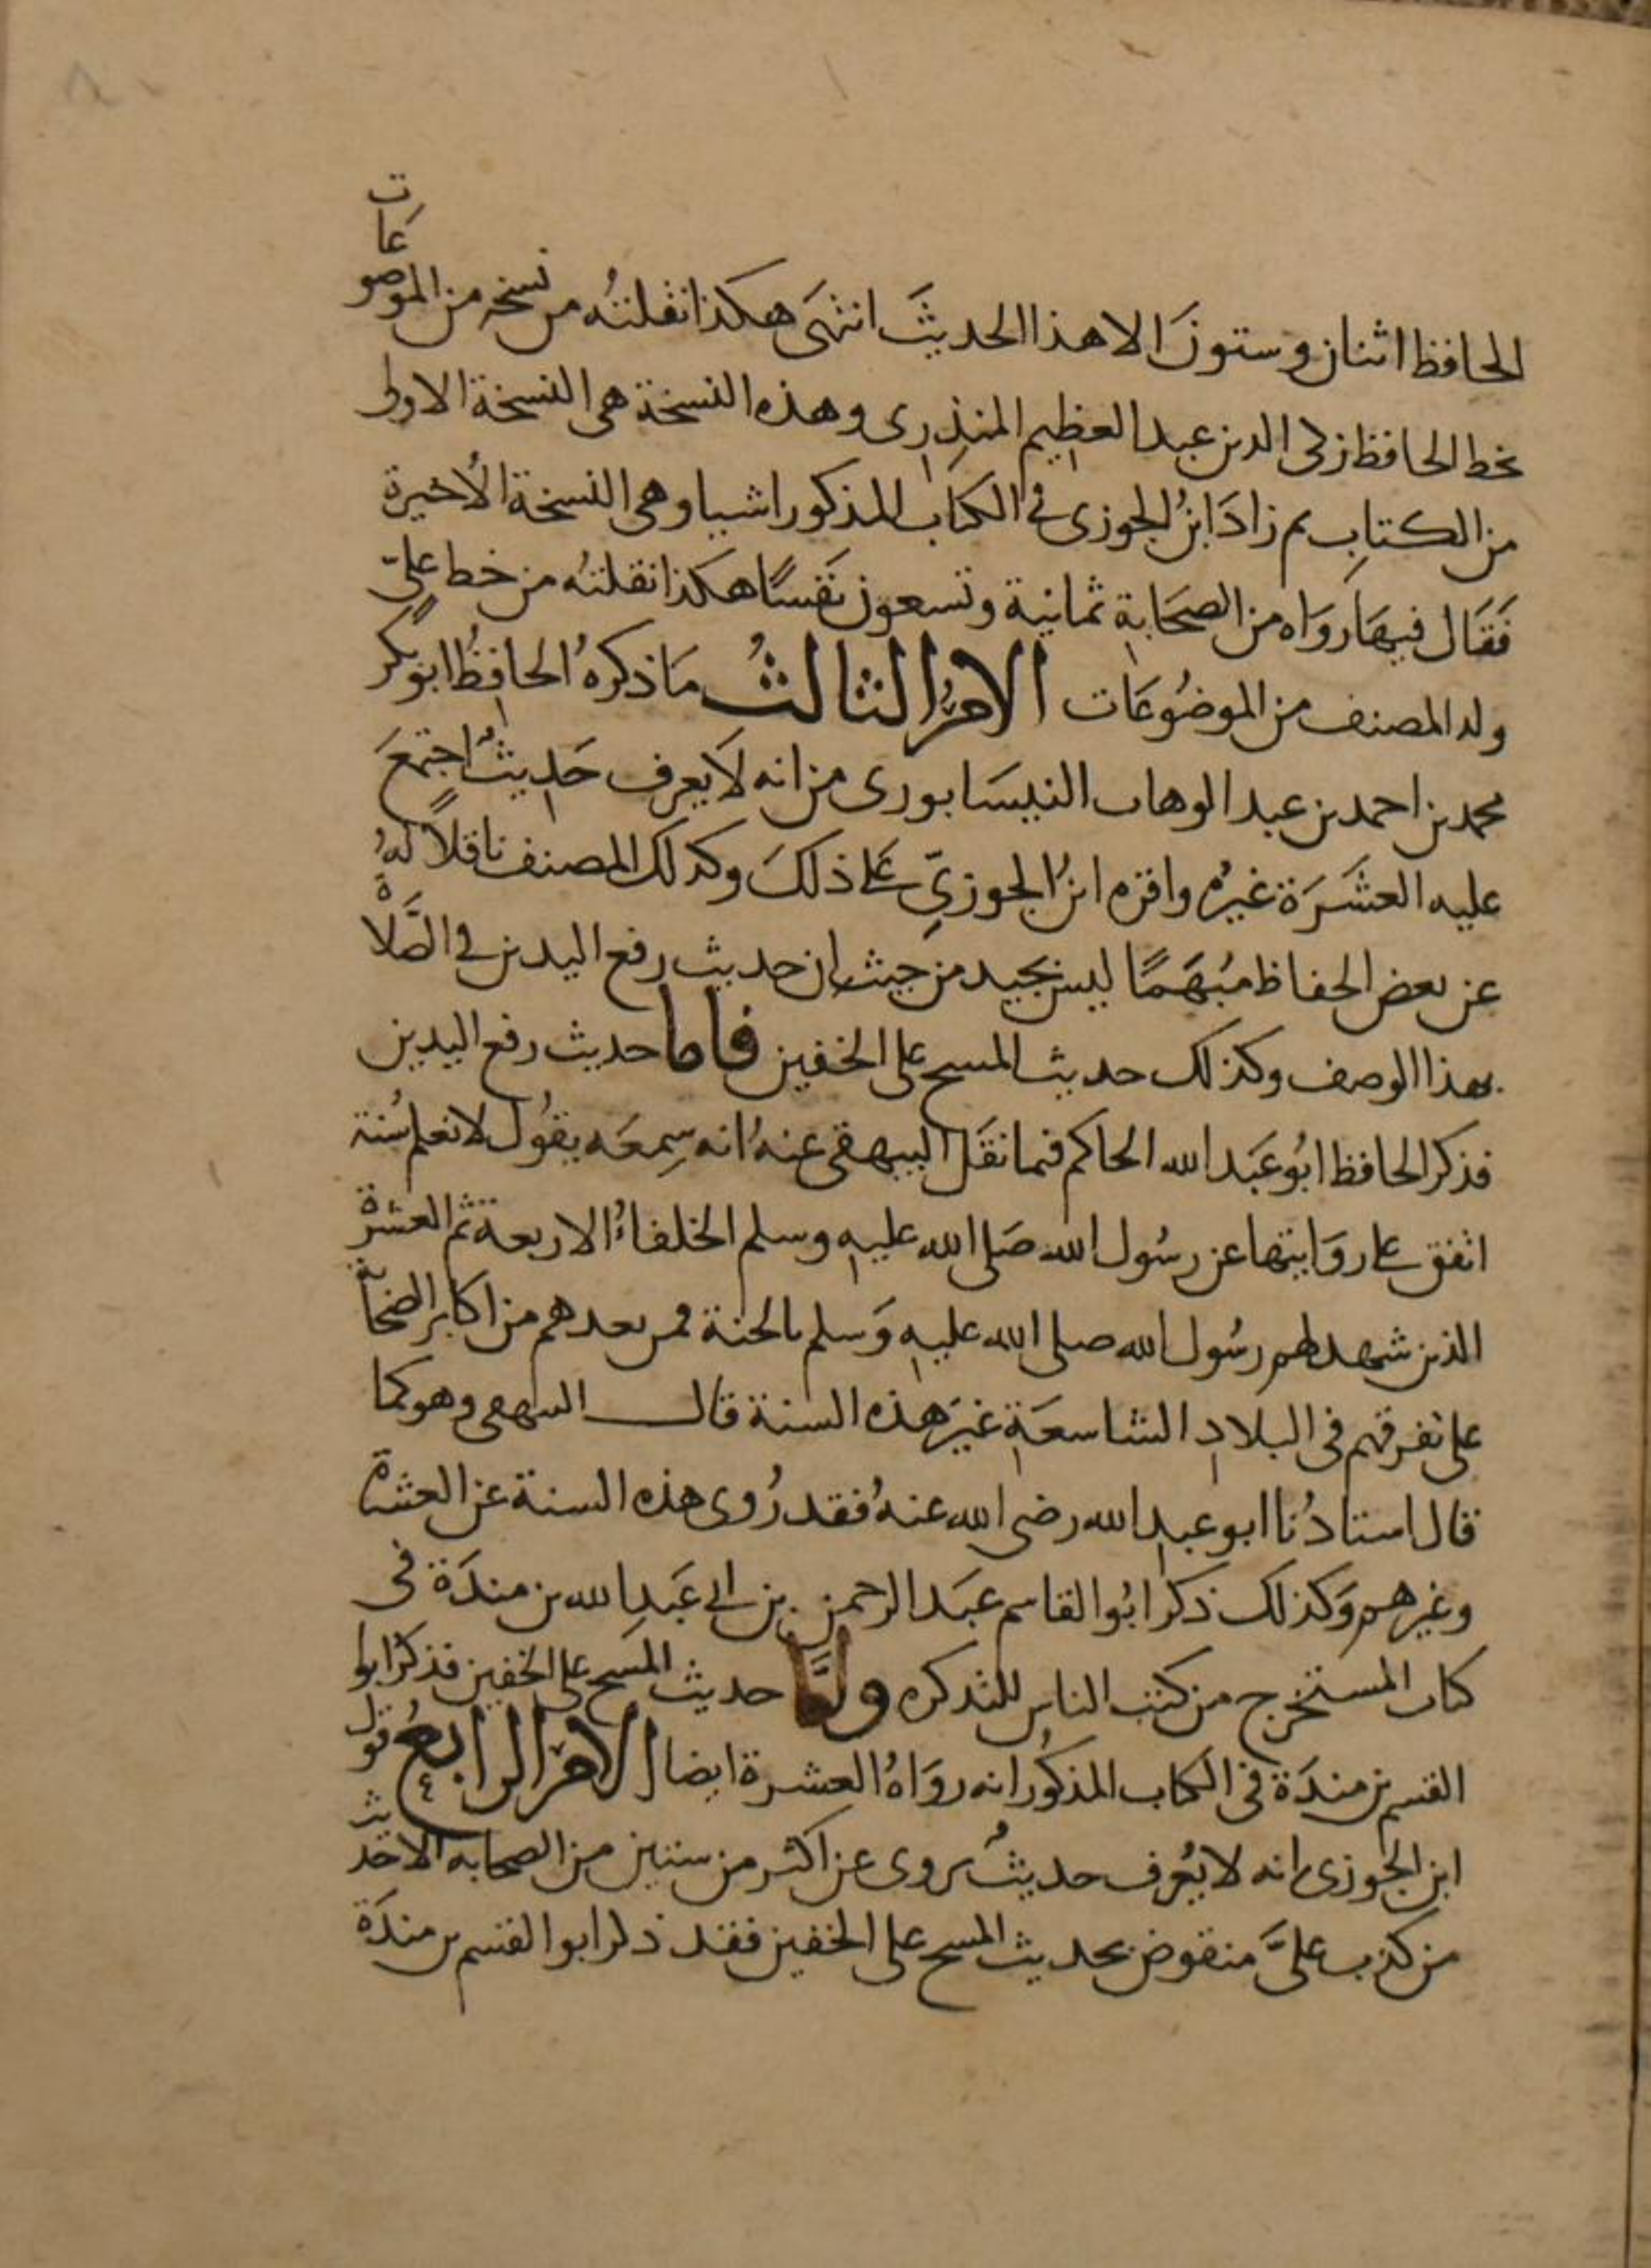 الحافظ اثنان وستونَ الا هذا الحديثَ انتهَى هكذا نقلتُه من نسخه من الموضوعَات
بخط الحافظ زكى الدين عبد العظيم المنذِرِى وهذه النسخة هى النسخة الاولى
من الكتابِ ثم زادَ ابنُ الجوزى فى الكتاب المذكور اشيا وهى النسخة الأخيرة
فَقَال فيهَا روَاه من الصحَابةِ ثمانية وتسعون نَفسًا هكذا نقلتُه من خط علىّ
ولد المصنف من الموضُوعَات الامر الثالثُ مَا ذكرهُ الحافِظُ ابو بكرٍ
محمد بن احمد بن عبد الوهاب النيسَابورى من انه لَا يعرف حَدِيثٌ اجتمَعَ
عليه العشَرَة غيرُه واقره ابنُ الجوزيِّ عَلى ذلكَ وكذلك المصنف ناقلاً لهُ
عن بعض الحفاظ مُبهَمًا ليس بجيد من حيث ان حديث رفع اليدين فى الصَّلاة
بهذا الوصف وكذلك حديث المسح على الخفين فاما حديث رفع اليدين
فذكر الحافظ ابُو عَبد الله الحاكم فيما نقَل البيهقى عنهُ انه سِمعَه يقوُل لا نعلم سُنة
اتفق على روَايتها عن رسُول الله صَلى الله عليهِ وسلم الخلفاءُ الاربعة ثم العشرة
الذين شهد لهم رسُول الله صلى الله عليهِ وَسلم بالجنة فمن بعدهم من اكابر الصَحَابة
على تفرقهم فى البلادِ الشاسعَةِ غيرَ هذه السنة قال البيهقى وهو كما
قال استادُنا ابو عبد الله رضى الله عنهُ فقد رُوى هذه السنة عن العشرة
وغيرهم وَكذلك ذكر ابُوا القاسم عبَد الرحمن بن ابى عَبدِ الله بن مندَة فى
كتاب المستخرج من كتب الناس للتذكره وأمَّا حديث المَسح على الخفين فذكر ابوا
القسم بن مندَة فى الكتاب المذكُور انه روَاهُ العشرة ايضا الامر الرابعُ قول
ابن الجوزى انه لا يُعرف حديثٌ يروى عن اكثر من ستين من الصحابه الا حَديث
من كذب علىَّ منقوض بحديث المسح على الخفين فقد ذكر ابوا القسم بن مندَة